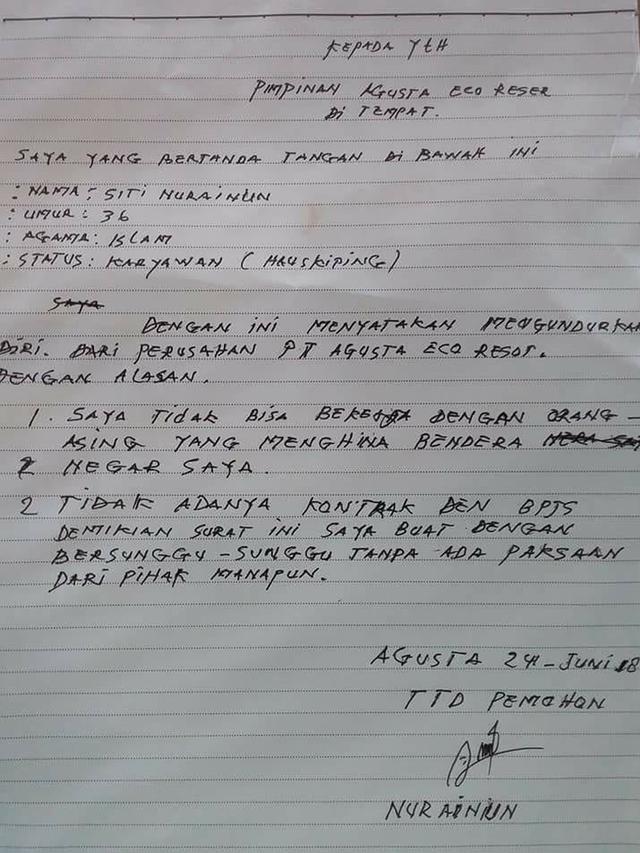 KEPADA YtH
PIMPINAN AGUSTA ECO RESER
Di TEMPAT.
SAYA YANG BERTANDA TANGAN Di BAWAH INI
: NAMA : SITI NURAINUN
: UMUR : 36
: AGAMA : ISLAM
: STATUS : KARYAWAN ( HAUSKIPING )
SAYA
DENGAN INI MENYATAKAN MENGUNDURKAN
DIRI. DARI PERUSAHAN PT AGUSTA ECO RESOT.
DENGAN ALASAN.
1. SAYA TIDAK BISA BEKERJA DENGAN ORANG-
ASING YANG MENGHINA BENDERA
NEGAR SAYA.
2 TIDAK ADANYA KONTRAK DEN BPJS
DEMIKIAN SURAT INI SAYA BUAT DENGAN
BERSUNGGU-SUNGGU TANPA ADA PAKSAAN
DARI PIHAK MANAPUN.
AGUSTA 24-JUNI 18
TTD PEMOHON
NURAINUN